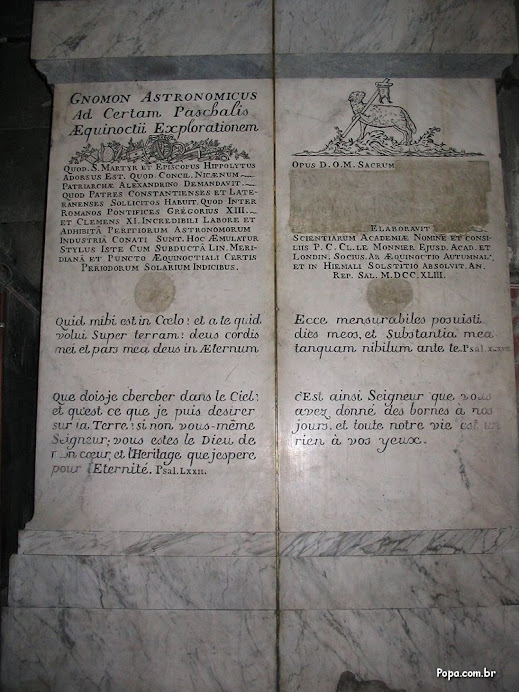 Gnomon Astronomicus
Ad Certam Paschalis
Æquinoctii Explorationem
Quod. S. Martyr et Episcopus Hippolytus
Adorsus Est. Quod Concil. Nicænum
Patriarchæ Alexandrino Demandavit.
Quod Patres Constantienses et Late-
ranenses Sollicitos Habuit. Quod Inter
Romanos Pontifices Gregorius XIII.
et Clemens XI. Incredibili Labore et
Adhibitâ Peritiorum Astronomorum
Industriâ Conati Sunt. Hoc Æmulatur
Stylus Iste Cum Subductâ Lin. Meri-
dianâ et Puncto Æquinoctiali Certis
Periodorum Solarium Indicibus.
Quid mihi est in Cœlo: et a te quid
volui Super terram: deus cordis
mei et pars mea deus in Æternum
Que dois-je chercher dans le Ciel:
et qu'est ce que je puis desirer
sur la Terre: si non vous-même
Seigneur; vous estes le Dieu de
mon cœur, et l'Heritage que j'espere
pour l'Eternité. Psal. LXXII.
Opus D. O. M. Sacrum
Elaboravit
Scientiarum Academiæ Nomine et consi-
liis P. C. Cl. Le Monnier Ejusd. Acad. et
Londin. Socius. Ab Æquinoctio Autumnali
et in Hiemali Solstitio Absolvit. An.
Rep. Sal. M.DCC.XLIII.
Ecce mensurabiles posuisti
dies meos, et Substantia mea
tanquam nihilum ante te. Psal.
c'Est ainsi Seigneur que vous
avez donné des bornes à nos
jours. et toute notre vie est un
rien à vos yeux.
Popa.com.br